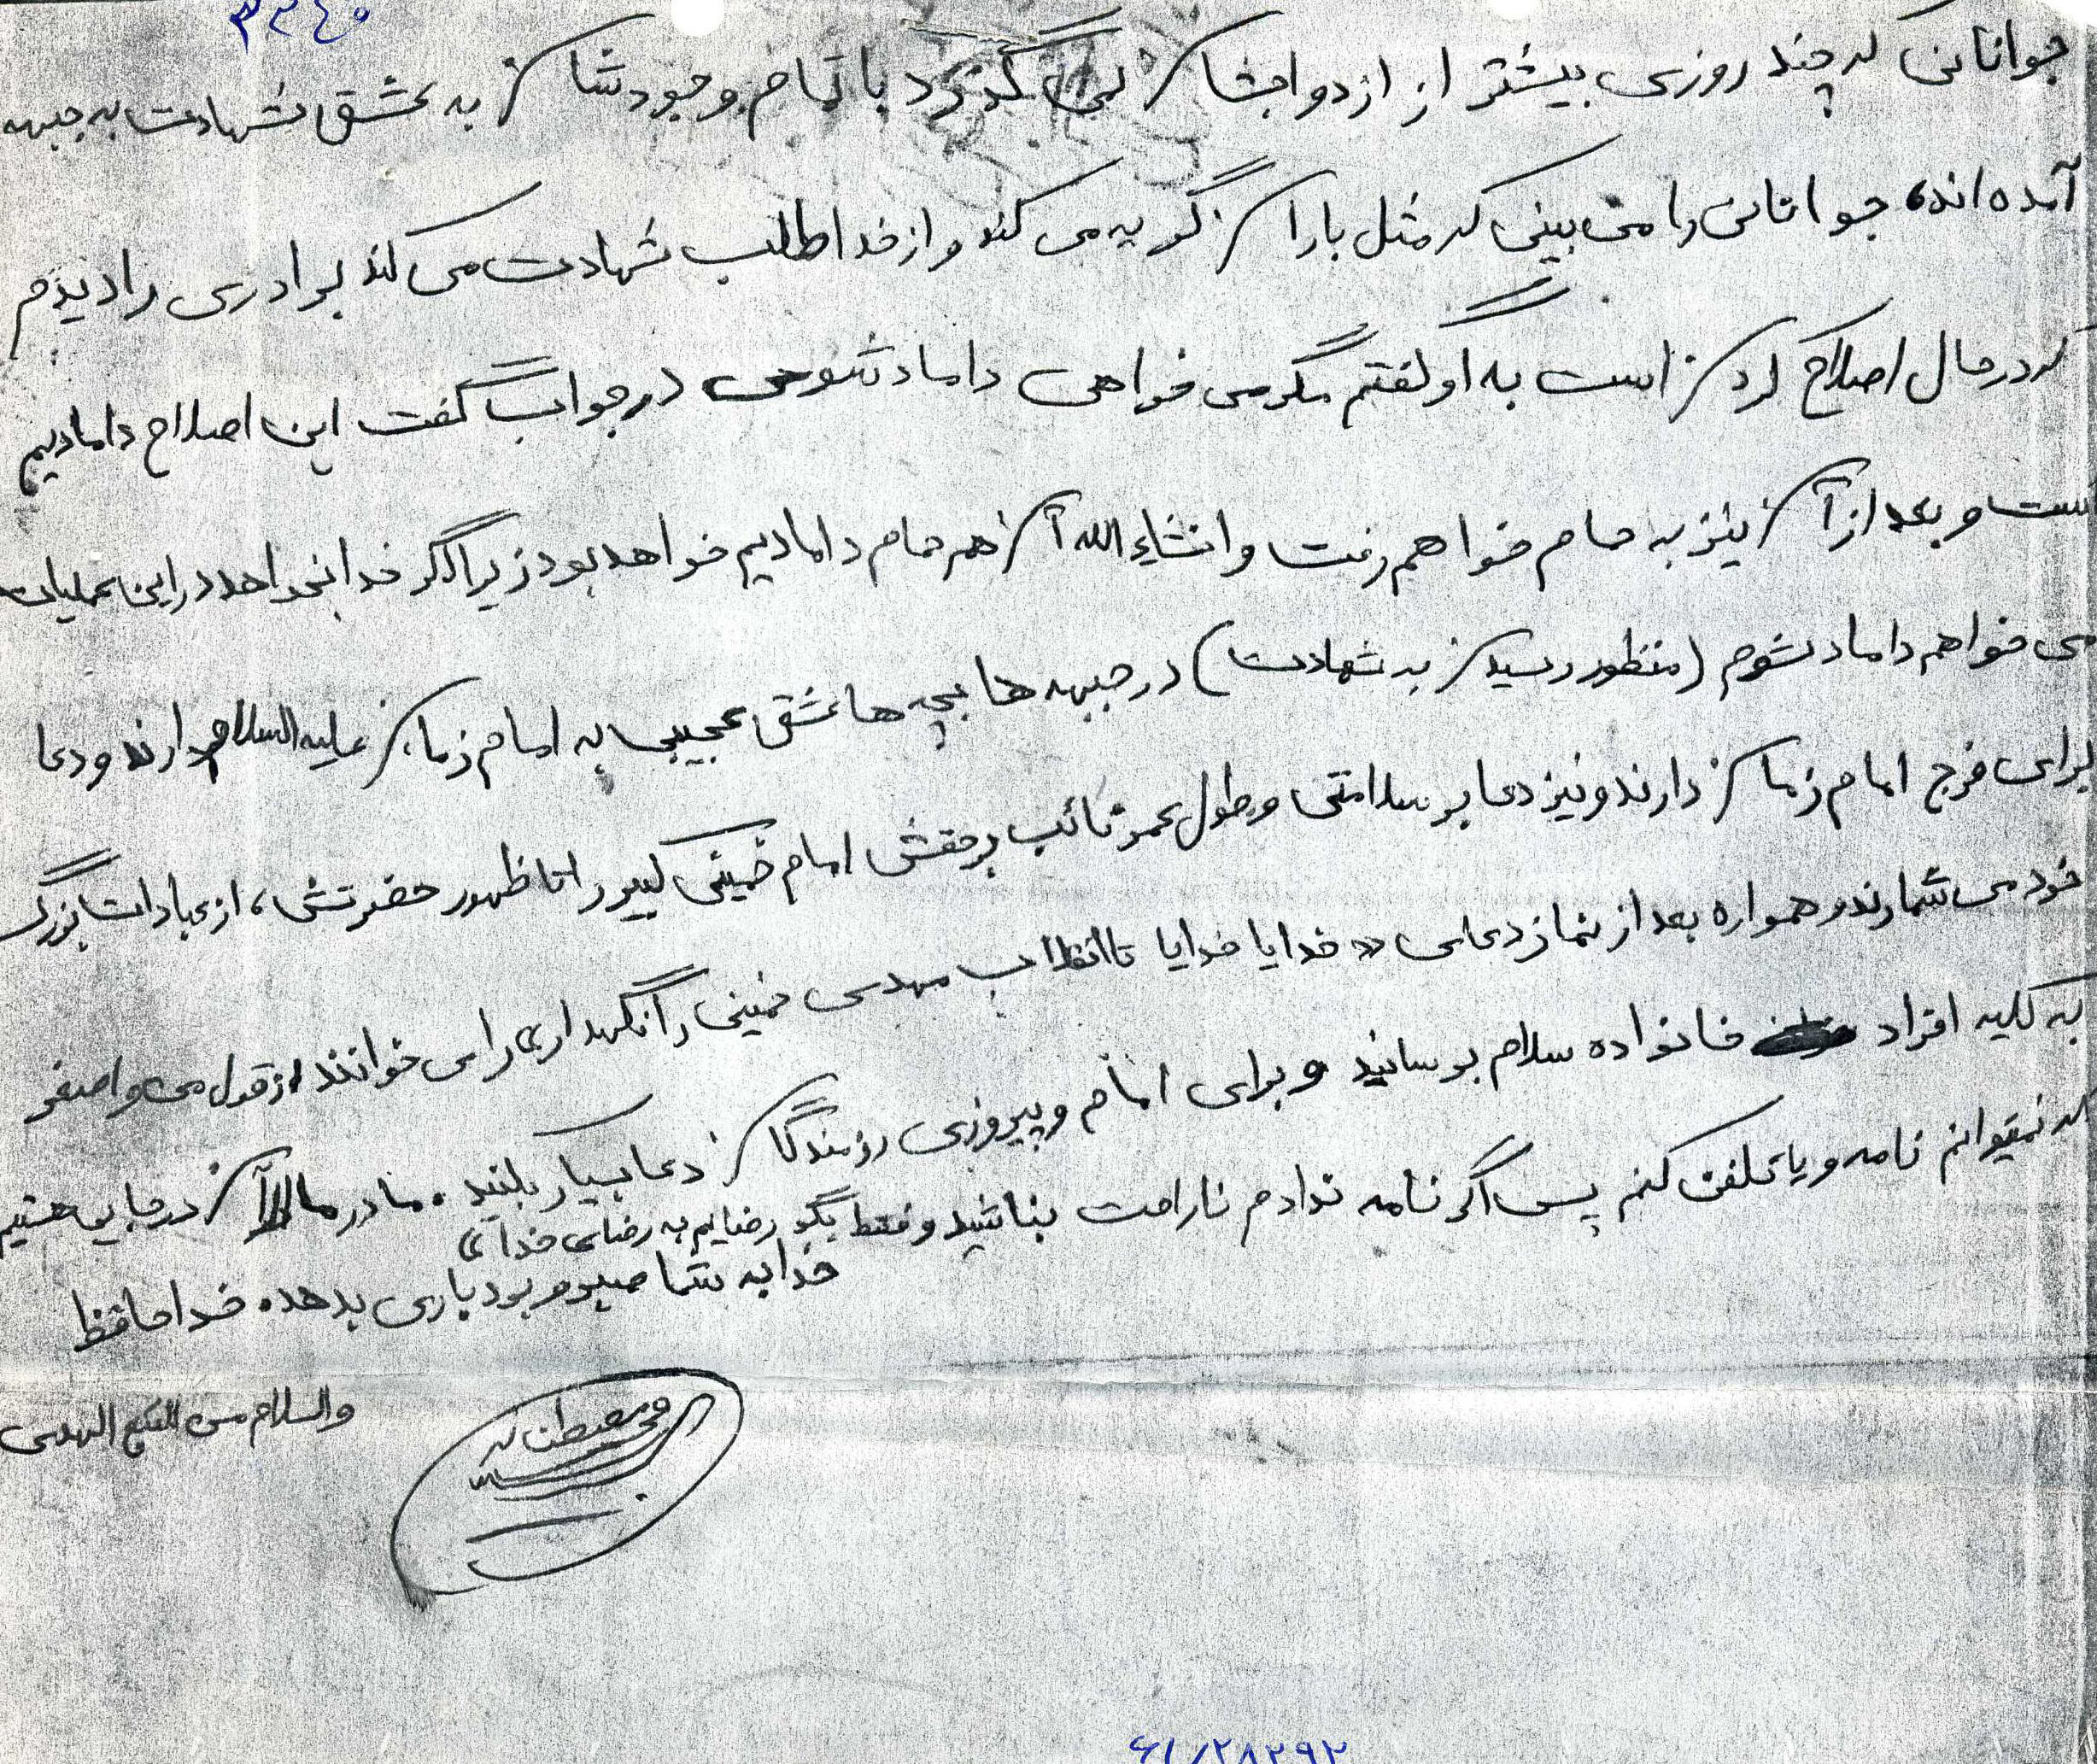 ۳۲۴۰
جوانانی که چند روزی بیشتر از ازدواجشان نمی گذرد با تمام وجودشان به عشق شهادت به جبهه
آمده اند، جوانانی را می بینی که مثل باران گریه می کند و از خدا طلب شهادت می کند برادری را دیدم
که در حال اصلاح کردن است به او گفتم مگر می خواهی داماد شوی در جواب گفت این اصلاح دامادیم
است و بعد از آن نیز به حمام خواهم رفت و انشاء الله آن هم حمام دامادیم خواهد بود زیرا اگر خدا بخواهد در این عملیات
می خواهم داماد بشوم (منظور رسیدن به شهادت) در جبهه ها بچه ها عشق عجیبی به امام زمان علیه السلام دارند و دعا
برای فرج امام زمان دارند و نیز دعا بر سلامتی و طول عمر نائب برحقش امام خمینی کبیر را تا ظهور حضرتش، از عبادات بزرگ
خود می شمارند و همواره بعد از نماز دعای «خدایا خدایا تا انقلاب مهدی خمینی را نگهدار» را می خوانند از قول من و اصغر
به کلیه افراد خانواده سلام برسانید و برای امام و پیروزی رزمندگان دعا بسیار بکنید. مادر ما الآن در جایی هستیم
که نمیتوانم نامه و یا تلفن کنم پس اگر نامه ندادم ناراحت نباشید و فقط بگو رضایم به رضای خدای
خدا به شما صبر و بردباری بدهد. خداحافظ
والسلام من التبع الهدی
۶۱/۲۸۲۹۲